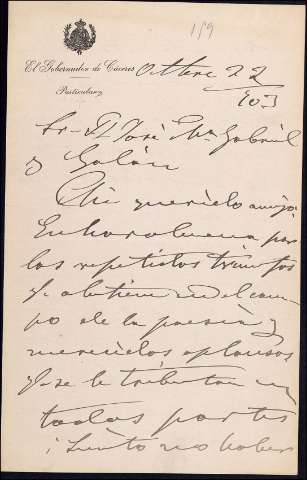 159
El Gobernador de Cáceres
Particular
Octbre 22
903
Sr. D. José Mª Gabriel
y Galán
Mi querido amigo:
Enhorabuena por
los repetidos triunfos
q. obtiene en el cam-
po de la poesía y
merecidos aplausos
q. se le tributan en
todas partes
¡Siento no haber